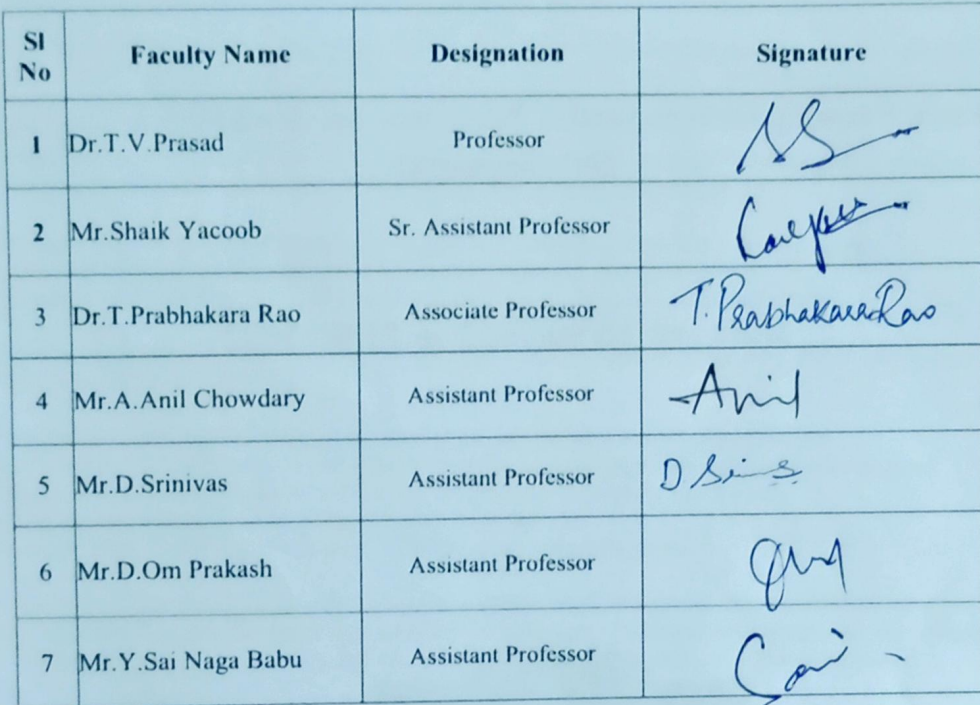 Sl No Faculty Name Designation Signature
1 Dr.T.V.Prasad Professor
2 Mr.Shaik Yacoob Sr. Assistant Professor
3 Dr.T.Prabhakara Rao Associate Professor T.PrabhakaraRao
4 Mr.A.Anil Chowdary Assistant Professor Anil
5 Mr.D.Srinivas Assistant Professor D
6 Mr.D.Om Prakash Assistant Professor
7 Mr.Y.Sai Naga Babu Assistant Professor